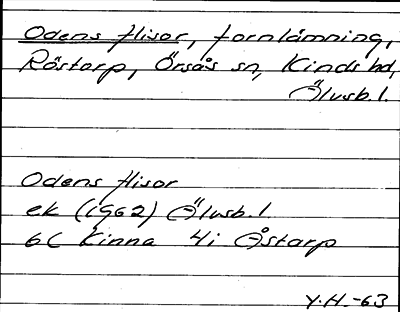 Odens flisor, fornlämning,
Röstorp, Örsås sn, Kinds hd,
Älvsb. l.
Odens flisor
ek (1962) Älvsb. l
6C Kinna 4i Åstarp
Y.H.-63